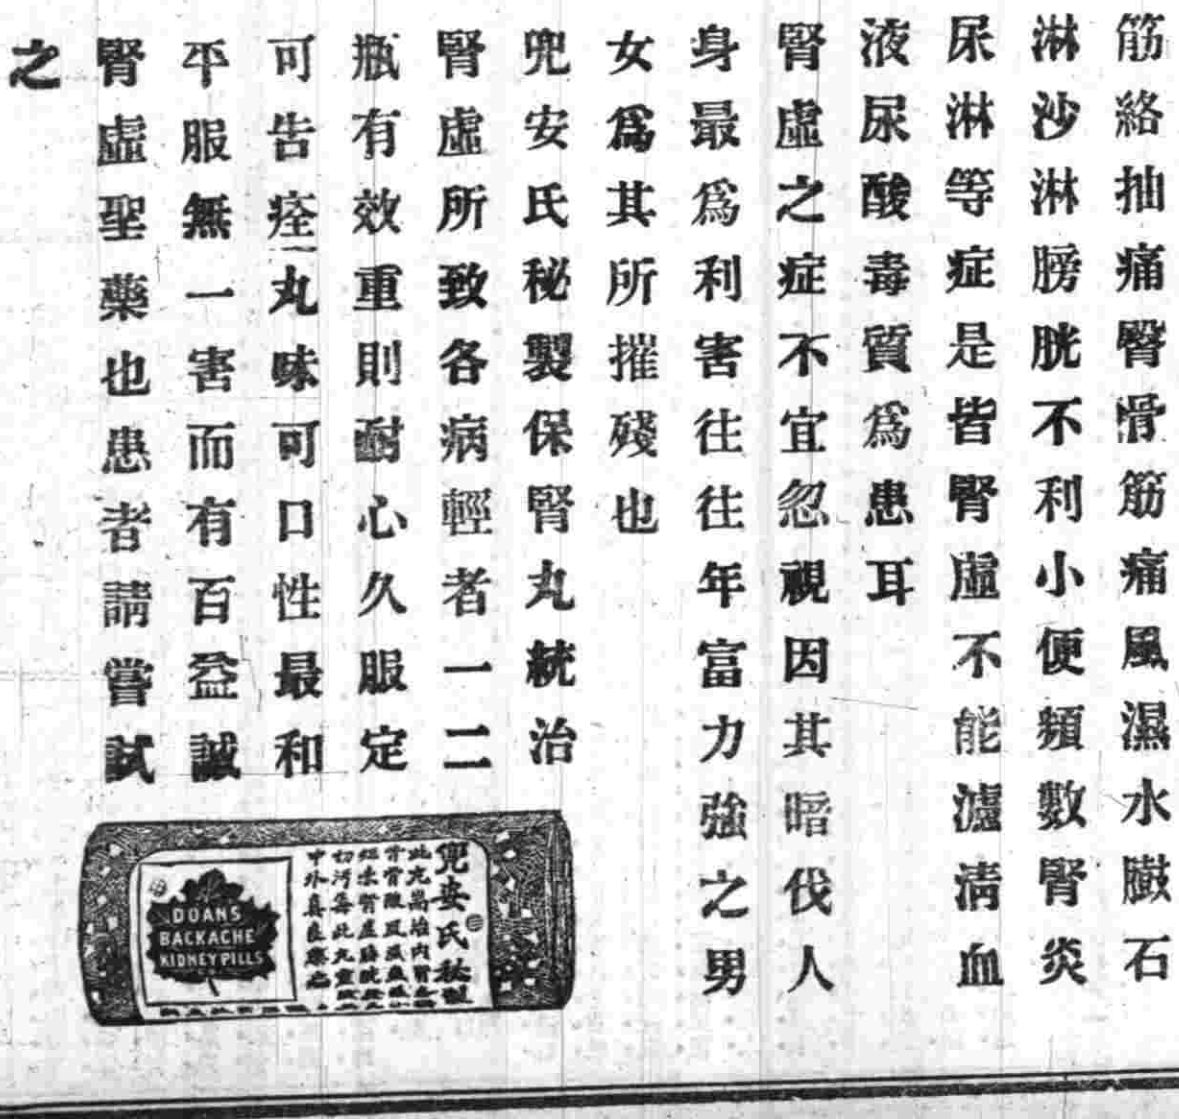 筋絡抽痛臀滑筋痛風濕水臌石
淋沙淋膀胱不利小便頻數腎炎
尿淋等症是皆腎虛不能濾清血
液尿酸毒質爲患耳
腎虛之症不宜忽視因其暗伐人
身最爲利害往往年富力強之男
女爲其所摧殘也
兜安氏秘製保腎丸統治
腎虛所致各病輕者一二
瓶有效重則耐心久服定
可告痊丸味可口性最和
平服無一害而有百益誠
腎虛聖藥也患者請嘗試
之
兜安氏秘製
DOANS
BACKACHE
KIDNEY PILLS